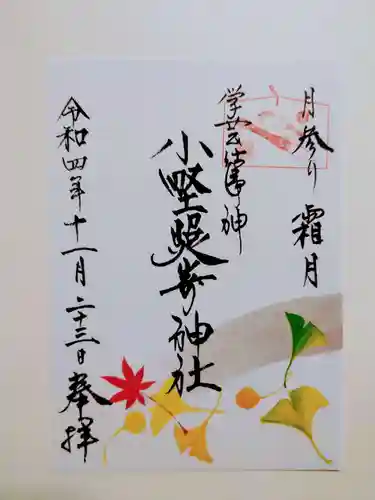 月参り 霜月
学芸結護神
小野照崎神社
令和四年十一月二十三日 奉拝